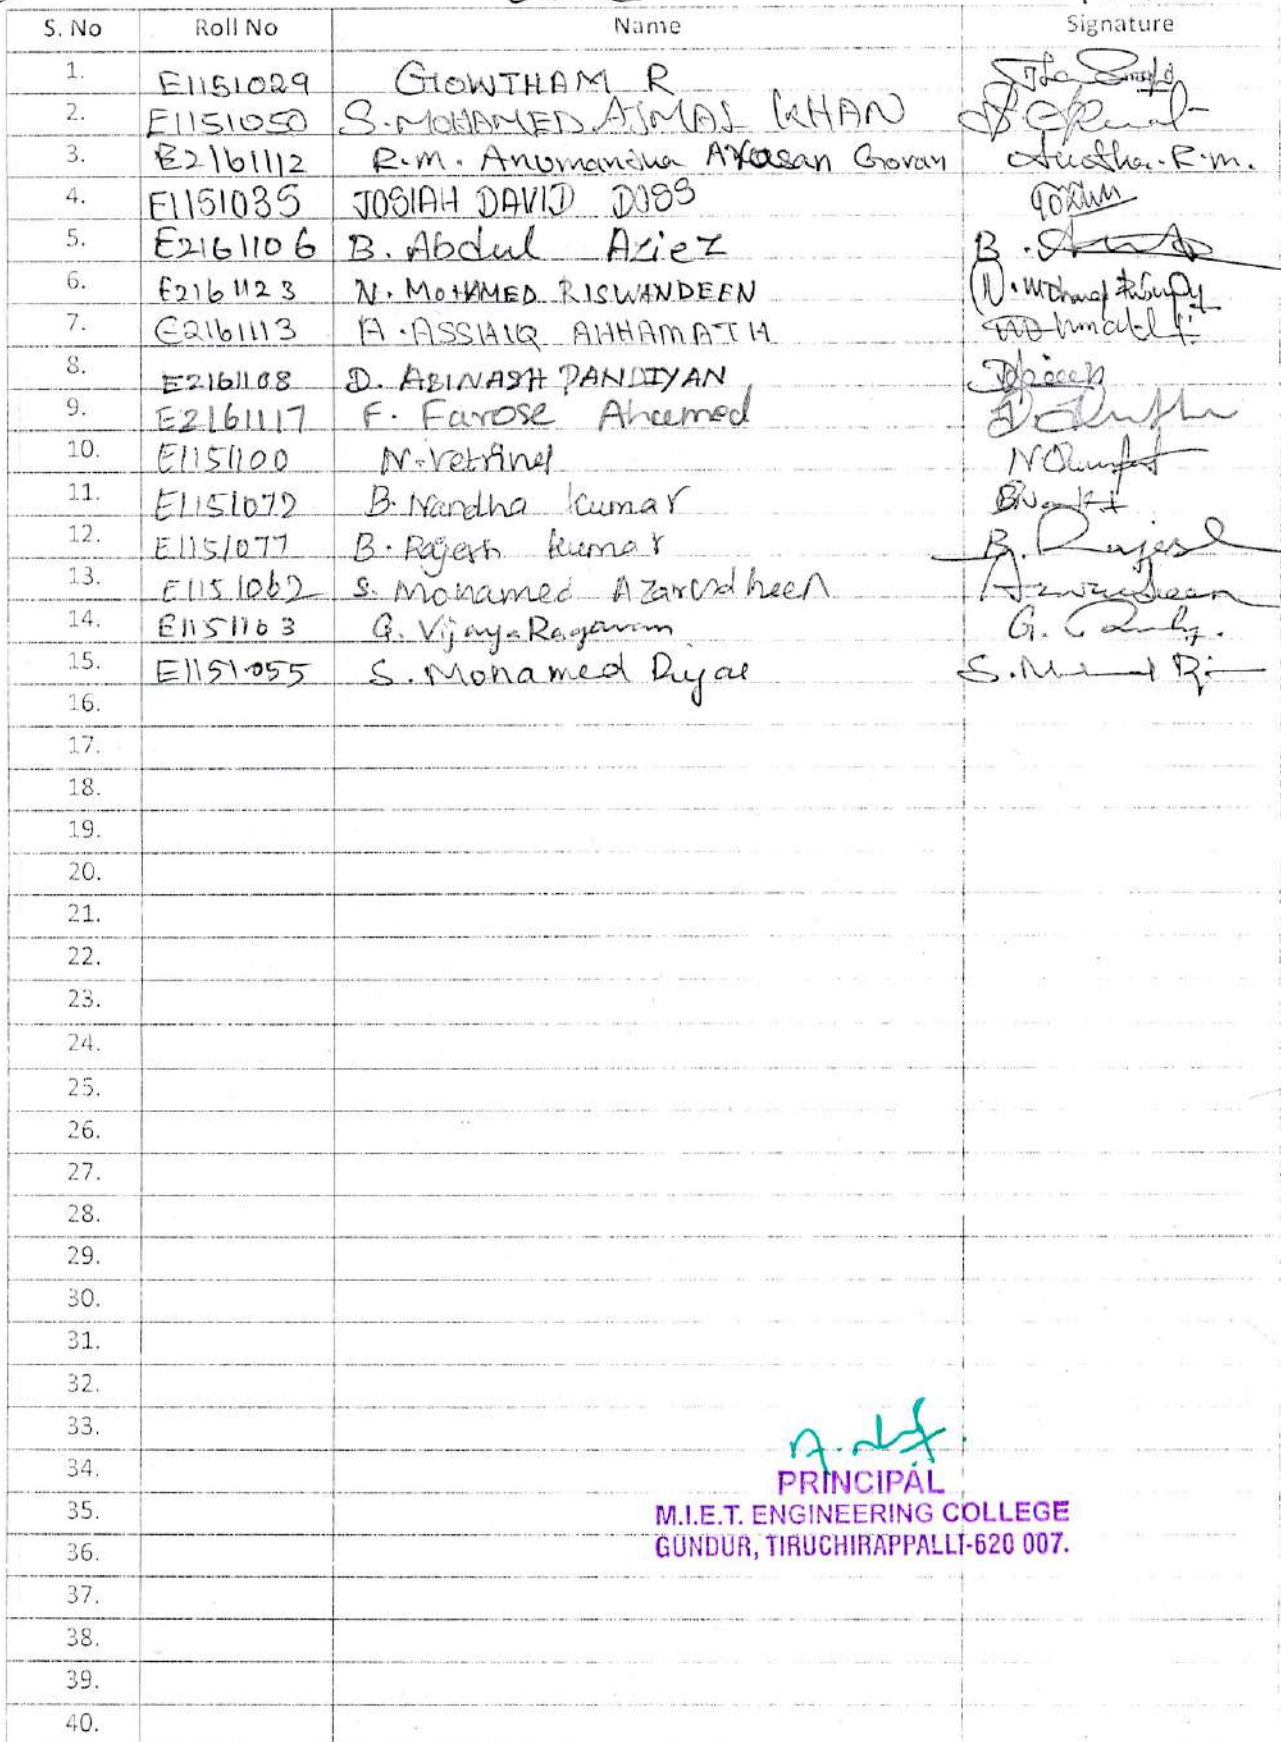 S. No Roll No Name Signature
1. E1151029 GOWTHAM R
2. E1151050 S. MOHAMED AJMAL KHAN
3. E2161112 R.m. Anumandha Arasan Govan Anotha. R.m.
4. E1151035 JOSIAH DAVID DOSS
5. E2161106 B. Abdul Aziez B.
6. E2161123 N. MOHAMED RISWANDEEN
7. E2161113 A. ASSIAIQ AHHAMATH
8. E2161108 D. ABINASH PANDIYAN
9. E2161117 F. Farose Ahcemed
10. E1151100 N. Vetrinel
11. E1151072 B. Nandha Kumar
12. E1151077 B. Rajesh kumar B. Rajesh
13. E1151062 S. Mohamed Azarudheen
14. E1151103 G. Vijaya Ragavam G.
15. E1151055 S. Mohamed Riyas S.
16.
17.
18.
19.
20.
21.
22.
23.
24.
25.
26.
27.
28.
29.
30.
31.
32.
33.
34.
PRINCIPAL
35.
M.I.E.T. ENGINEERING COLLEGE
36.
GUNDUR, TIRUCHIRAPPALLI-620 007.
37.
38.
39.
40.